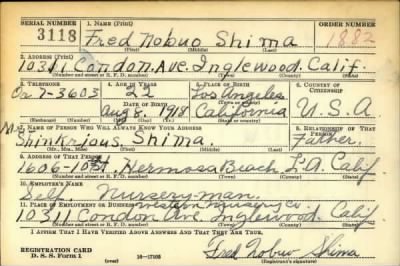 SERIAL NUMBER
1. NAME (Print)
ORDER NUMBER
3118
Fred Nobuo Shima
1882
(First) (Middle) (Last)
2. ADDRESS (Print)
10311 Condon Ave. Inglewood. Calif.
(Number and street or R. F. D. number) (Town) (County) (State)
3. TELEPHONE
4. AGE IN YEARS
5. PLACE OF BIRTH
6. COUNTRY OF CITIZENSHIP
Or 7-3603
22
Los Angeles
(Town or county)
DATE OF BIRTH
Aug 8, 1918
California
U.S.A
(Exchange) (Number)
(Mo.) (Day) (Yr.)
(State or country)
7. NAME OF PERSON WHO WILL ALWAYS KNOW YOUR ADDRESS
8. RELATIONSHIP OF THAT PERSON
Shima
Father.
(First) (Middle) (Last)
9. ADDRESS OF THAT PERSON
1606-10th Hermosa Beach L.A. Calif
(Number and street or R. F. D. number) (Town) (County) (State)
10. EMPLOYER'S NAME
Self Nurseryman
11. PLACE OF EMPLOYMENT OR BUSINESS
Western Nursery Co
10311 Condon Ave Inglewood. Calif
(Number and street or R. F. D. number) (Town) (County) (State)
I AFFIRM THAT I HAVE VERIFIED ABOVE ANSWERS AND THAT THEY ARE TRUE.
REGISTRATION CARD
D. S. S. FORM 1
(over)
16—17105
Fred Nobuo Shima
(Registrant's signature)